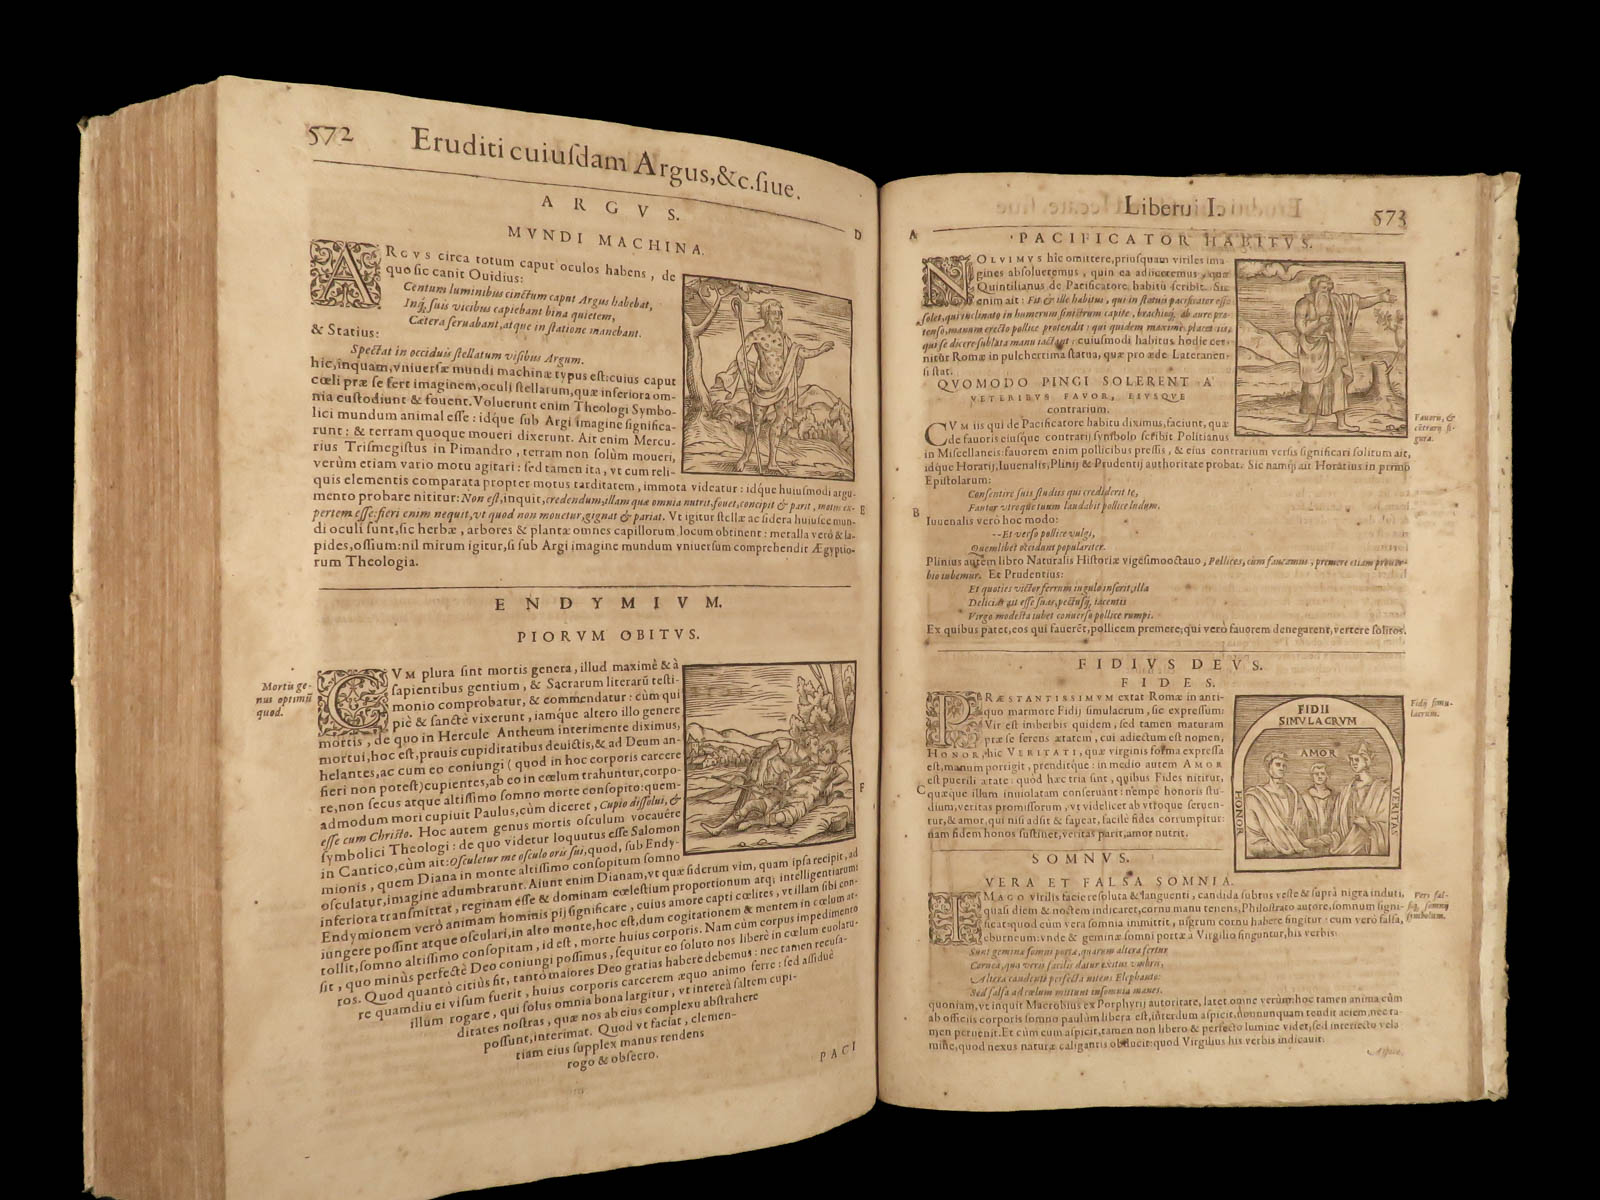 572
Eruditi cuiuſdam Argus,&c.ſiue.
A R G V S.
D
MVNDI MACHINA.
ARGVS circa totum caput oculos habens, de
quo ſic canit Ouidius:
Centum luminibus cinctum caput Argus habebat,
Inq́; ſuis vicibus capiebant bina quietem,
Cætera ſeruabant, atque in ſtatione manebant.
& Statius:
Spectat in occiduis ſtellatum viſibus Argum.
hic, inquam, vniuerſæ mundi machinæ typus eſt: cuius caput
cœli præ ſe fert imaginem, oculi ſtellarum, quæ inferiora om-
nia cuſtodiunt & fouent. Voluerunt enim Theologi Symbo-
lici mundum animal eſſe: idq́ue ſub Argi imagine ſignifica-
runt: & terram quoque moueri dixerunt. Ait enim Mercu-
rius Triſmegiſtus in Pimandro, terram non ſolùm moueri,
verùm etiam vario motu agitari: ſed tamen ita, vt cum reli-
quis elementis comparata propter motus tarditatem, immota videatur: idq́ue huiuſmodi argu-
mento probare nititur: Non eſt, inquit, credendum, illam quæ omnia nutrit, fouet, concipit & parit, motus ex-
E
pertem eſſe: fieri enim nequit, vt quod non mouetur, gignat & pariat. Vt igitur ſtellæ ac ſidera huiuſce mun-
di oculi ſunt, ſic herbæ, arbores & plantæ omnes capillorum locum obtinent: metalla verò & la-
pides, oſſium: nil mirum igitur, ſi ſub Argi imagine mundum vniuerſum comprehendit Ægyptio-
rum Theologia.
E N D Y M I V M.
PIORVM OBITVS.
Mortis ge-
nus optimũ
quod.
CVM plura ſint mortis genera, illud maximè & à
ſapientibus gentium, & Sacrarum literarũ teſti-
monio comprobatur, & commendatur: cùm qui
piè & ſanctè vixerunt, iamq́ue altero illo genere
mortis, de quo in Hercule Antheum interimente diximus,
mortui, hoc eſt, prauis cupiditatibus deuictis, & ad Deum an-
helantes, ac cum eo coniungi (quod in hoc corporis carcere
fieri non poteſt) cupientes, ab eo in cœlum trahuntur, corpo-
re, non ſecus atque altiſſimo ſomno morte conſopito: quem-
F
admodum mori cupiuit Paulus, cùm diceret, Cupio diſſolui, &
eſſe cum Chriſto. Hoc autem genus mortis oſculum vocauêre
ſymbolici Theologi: de quo videtur loquutus eſſe Salomon
in Cantico, cùm ait: Oſculetur me oſculo oris ſui, quod, ſub Endy-
mionis, quem Diana in monte altiſſimo conſopitum ſomno
oſculatur, imagine adumbratunt. Aiunt enim Dianam, vt quæ ſiderum vim, quam ipſa recipit, ad
inferiora tranſmittat, reginam eſſe & dominam cœleſtium proportionum atq; intelligentiarum:
Endymionem verò animam hominis pij ſignificare, cuius amore capti cœlites, vt illam ſibi con-
iungere poſſint atque oſculari, in alto monte, hoc eſt, dum cogitationem & mentem in cœlum at-
tollit, ſomno altiſſimo conſopitam, id eſt, morte huius corporis. Nam cùm corpus impedimento
ſit, quo minùs perfectè Deo coniungi poſſimus, ſequitur eo ſoluto nos liberè in cœlum euolatu-
ros. Quod quantò citiùs fit, tantò maiores Deo gratias habere debemus: nec tamen recuſa-
re quamdiu ei viſum fuerit, huius corporis carcerem æquo animo ferre: ſed aſſiduè
illum rogare, qui ſolus omnia bona largitur, vt intereà ſaltem cupi-
ditates noſtras, quæ nos ab eius complexu abſtrahere
poſſunt, interimat. Quod vt faciat, clemen-
tiam eius ſupplex manus tendens
rogo & obſecro.
PACI
Liber vi I.
573
A
PACIFICATOR HABITVS.
NOLVIMVS hîc omittere, priuſquam viriles ima-
gines abſolueremus, quin ea adiiceremus, quæ
Quintilianus de Pacificatore habitu ſcribit. Sic
enim ait: Fit & ille habitus, qui in ſtatuis pacificator eſſe
ſolet, qui inclinato in humerum ſiniſtrum capite, brachioq́; ab aure pro-
tenſo, manum erecto pollice protendit: qui quidem maximè placet iis,
qui ſe dicere ſublata manu iactant: cuiuſmodi habitus hodie cer-
nitur Romæ in pulcherrima ſtatua, quæ pro æde Lateranen-
ſi ſtat.
QVOMODO PINGI SOLERENT A'
VETERIBVS FAVOR, EIVSQVE
contrarium.
Fauoris, &
cõtrarij fi-
gura.
CVM iis qui de Pacificatore habitu diximus, faciunt, quæ
de fauoris eiuſque contrarij ſymbolo ſcribit Politianus
in Miſcellaneis: fauorem enim pollicibus preſſis, & eius contrarium verſis ſignificari ſolitum ait,
idq́ue Horatij, Iuuenalis, Plinij & Prudentij authoritate probat. Sic namq́; ait Horatius in primo
Epiſtolarum:
Conſentire ſuis ſtudiis qui crediderit te,
Fautor vtroque tuum laudabit pollice ludum.
B
Iuuenalis verò hoc modo:
--Et verſo pollice vulgi,
Quemlibet occidunt populariter.
Plinius autem libro Naturalis Hiſtoriæ vigeſimooctauo, Pollices, cùm faueamus, premere etiam prouer-
bio iubemur. Et Prudentius:
Et quoties victor ferrum iugulo inſerit, illa
Delicias ait eſſe ſuas, pectuſq́; iacentis
Virgo modeſta iubet conuerſo pollice rumpi.
Ex quibus patet, eos qui fauerẽt, pollicem premere; qui verò fauorem denegarent, vertere ſolitos.
FIDIVS DEVS.
FIDES.
Fidij ſimu-
lacrum.
PRÆSTANTISSIMVM extat Romæ in anti-
quo marmore Fidij ſimulacrum, ſic expreſſum:
Vir eſt imberbis quidem, ſed tamen maturam
præ ſe ferens ætatem, cui adiectum eſt nomen,
HONOR, hic VERITATI, quæ virginis forma expreſſa
eſt, manum porrigit, prenditq́ue: in medio autem AMOR
eſt puerili ætate: quòd hæc tria ſint, quibus Fides nititur,
C
quæque illum inuiolatam conſeruant: nempe honoris ſtu-
dium, veritas promiſſorum, vt videlicet ab vtroque ſeruen-
tur, & amor, qui niſi adſit & faueat, facilè fides corrumpitur:
nam fidem honos ſuſtinet, veritas parit, amor nutrit.
FIDII
SIMVLACRVM
AMOR
HONOR
VERITAS
SOMNVS.
VERA ET FALSA SOMNIA.
Veri fal-
ſiq́; ſomnij
ſymbolum.
IMAGO virilis facie reſoluta & languenti, candida ſubtus veſte & ſuprà nigra induti,
quaſi diem & noctem indicaret, cornu manu tenens, Philoſtrato autore, ſomnum ſigni-
ficat: quod cùm vera ſomnia immittit, nigrum cornu habere fingitur: cum verò falſa,
eburneum: vnde & geminæ ſomni portæ à Virgilio finguntur, his verbis:
Sunt geminæ ſomni portæ, quarum altera fertur
Cornea, qua veris facilis datur exitus vmbris,
Altera candenti perfecta nitens Elephanto:
Sed falſa ad cœlum mittunt inſomnia manes.
quoniam, vt inquit Macrobius ex Porphyrij autoritate, latet omne verum: hoc tamen anima cùm
ab officiis corporis ſomno paulùm libera eſt, interdum aſpicit, nonnunquam tendit aciem, nec ta-
men peruenit. Et cùm aſpicit, tamen non libero & perfecto lumine videt, ſed interiecto vela
mine, quod nexus naturæ caligantis obducit: quod Virgilius his verbis indicauit:
Aſpice,